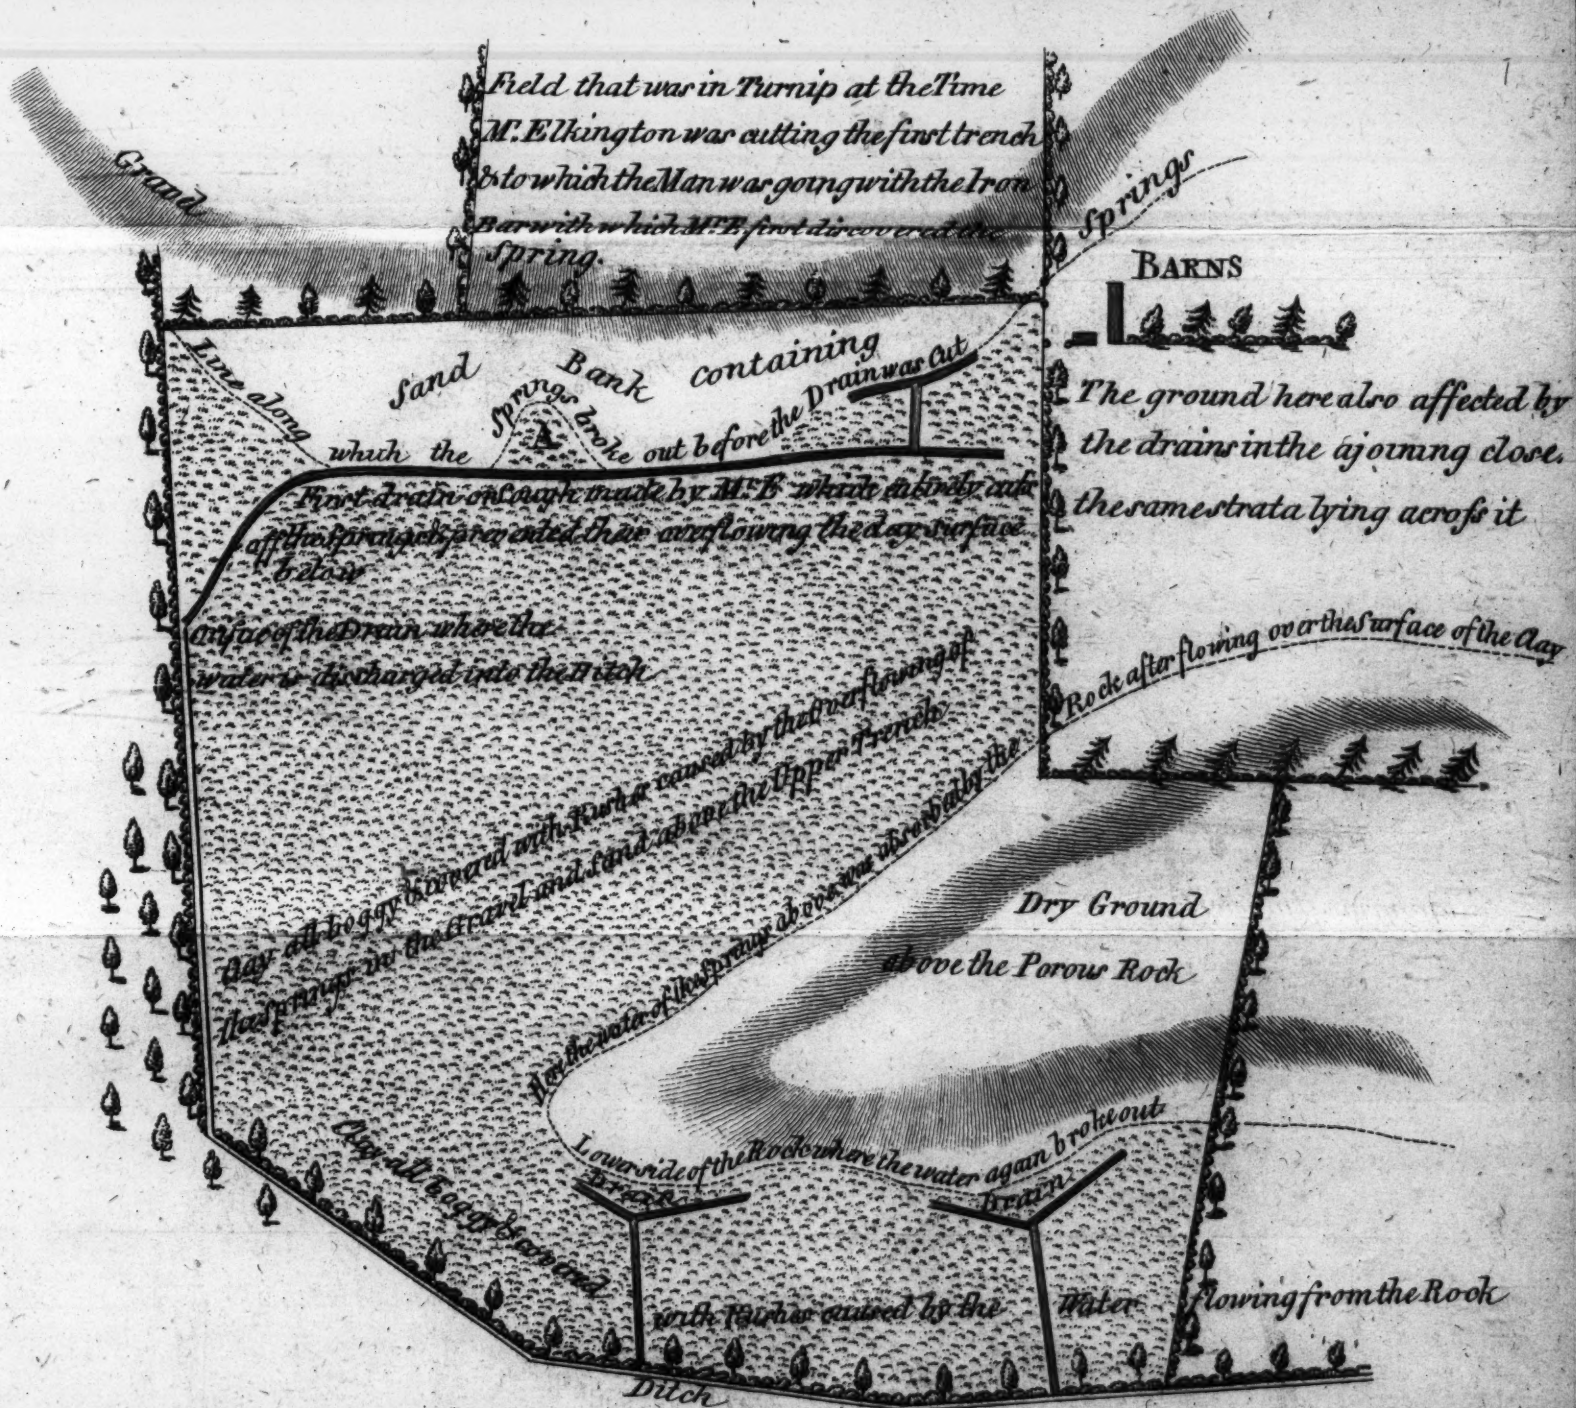 Field that was in Turnip at the Time
Mr. Elkington was cutting the first trench
& to which the Man was going with the Iron
Bar with which Mr. E. first discovered the
Spring.
Grand
Springs
BARNS
Sand Bank containing
Line along which the Springs broke out before the Drain was Cut
A
The ground here also affected by
the drains in the ajoining close.
the same strata lying across it
First drain or Sough made by Mr. E which entirely cuts
off the springs & prevented their overflowing the clay surface
below
of the Drain where the
water is discharged into the Ditch
Clay all boggy & covered with Rushes caused by the Overflowing of
the springs in the Gravel and Sand above the Upper Trench
Here the water of the springs above was absorbed by the Rock after flowing over the Surface of the Clay
Dry Ground
above the Porous Rock
Lower side of the Rock where the water again broke out
Drain
Drain
Clay all boggy & covered
with Rushes caused by the Water flowing from the Rock
Ditch